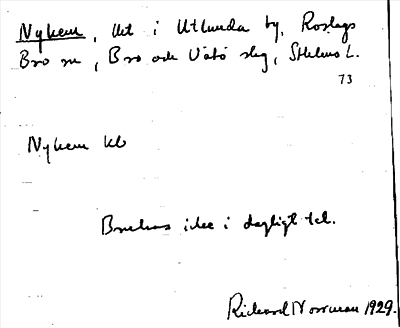 Nyhem, lht i Utlunda by, Roslags
Bro sn, Bro och Vätö skg, Sthlms L.
73
Nyhem
Brukas icke i dagligt tal.
Rickard Norrman 1929.